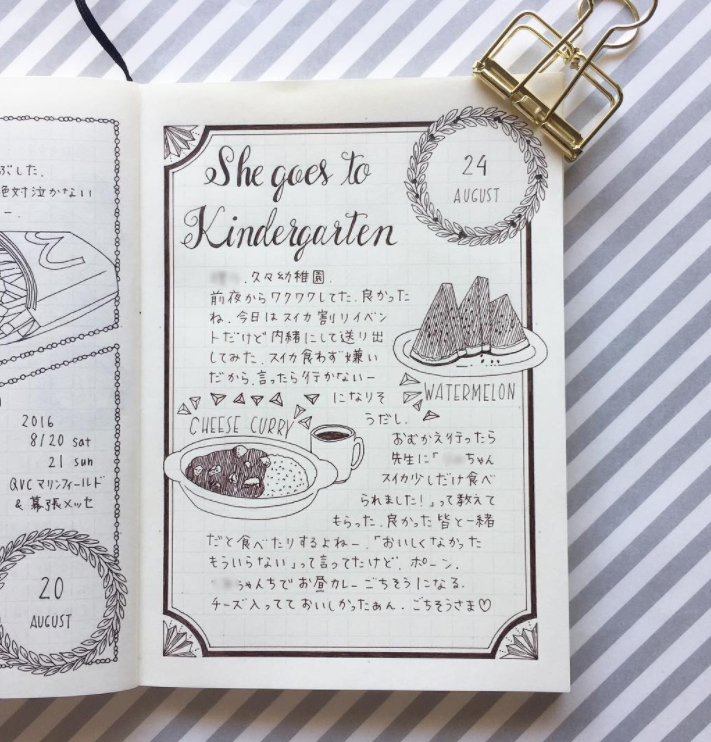 ぶした.
絶対泣かない
ー.
2016
8/20 sat
21 sun
QVCマリンフィールド
& 幕張メッセ
20
AUGUST
She goes to
Kindergarten
24
AUGUST
.久々幼稚園.
前夜からワクワクしてた.良かった
ね.今日はスイカ割りイベン
トだけど内緒にして送り出
してみた.スイカ食わず嫌い
だから.言ったら行かないー
になりそ
うだし.
WATERMELON
CHEESE CURRY
おむかえ行ったら
先生に「 ちゃん
スイカ少しだけ食べ
られました!」って教えて
もらった.良かった 皆と一緒
だと食べたりするよねー.「おいしくなかった
もういらない」って言ってたけど. ポーン.
ちゃんちでお昼カレーごちそうになる.
チーズ入ってておいしかったぁん.ごちそうさま♡